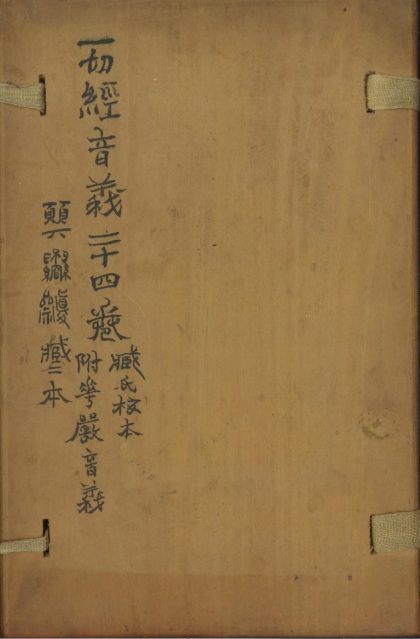 一切經音義二十四卷
臧氏校本
附華嚴音義
臧二本